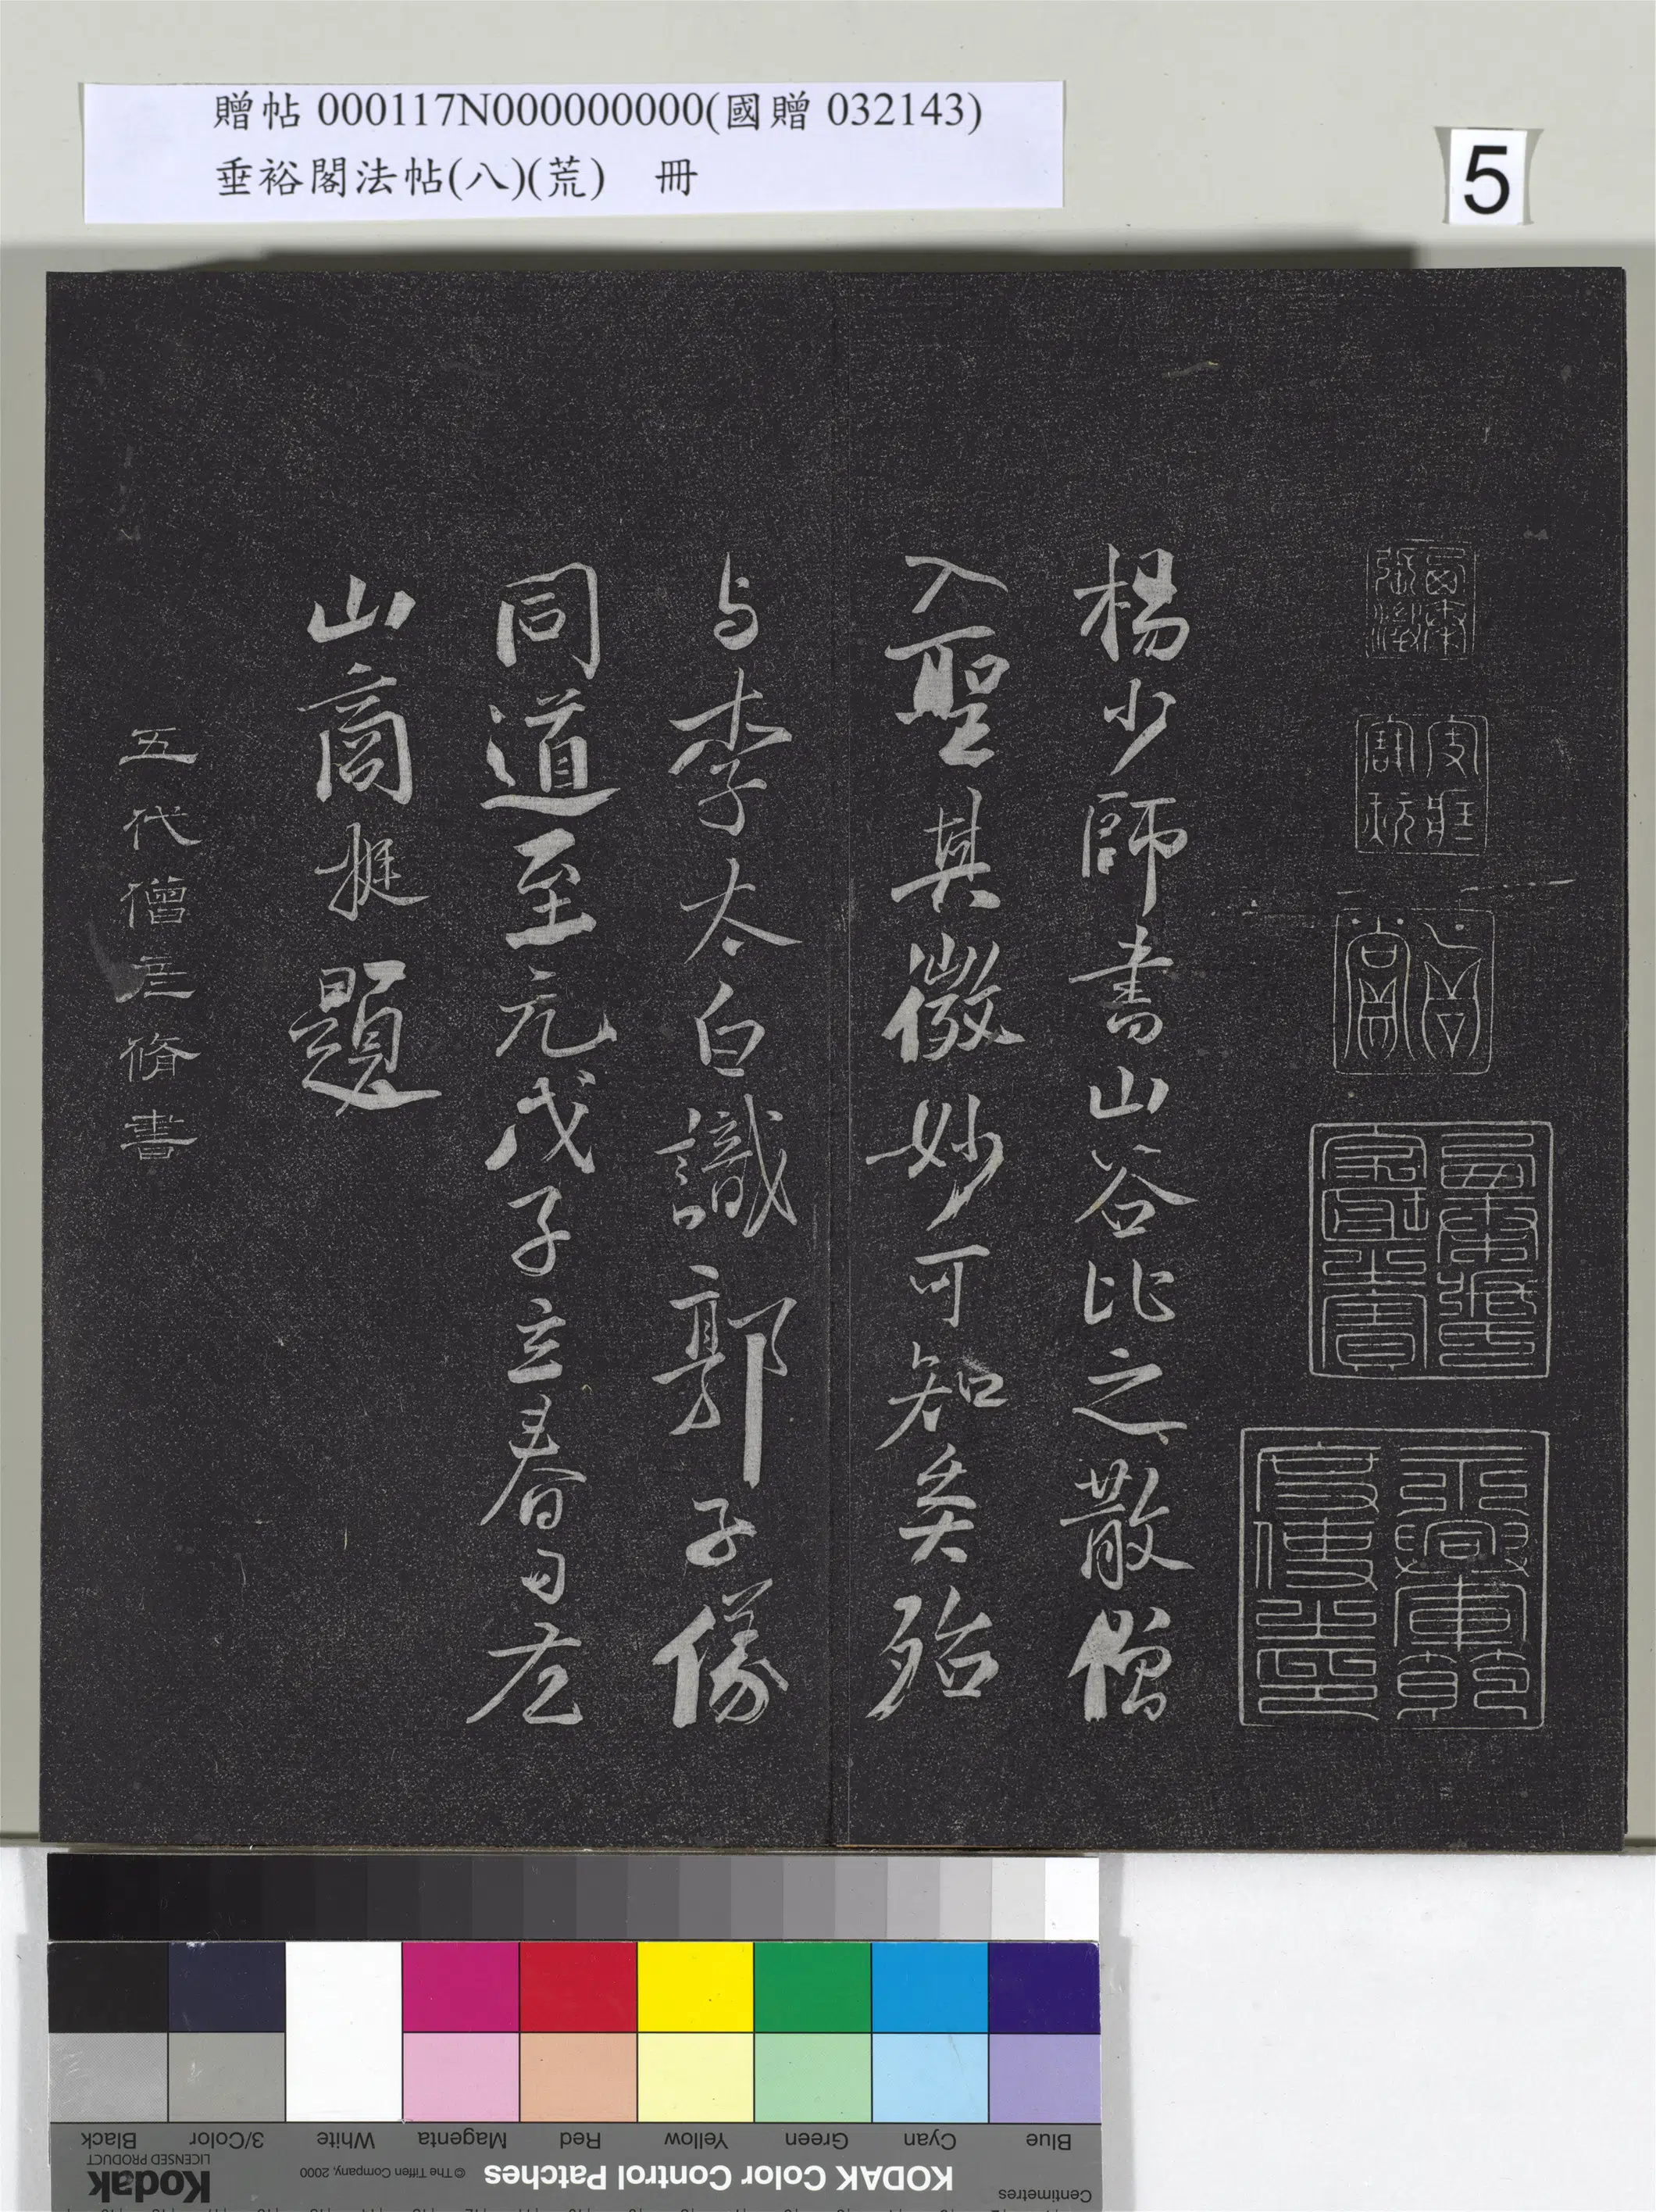 贈帖 000117N000000000(國贈 032143)
垂裕閣法帖(八)(荒) 冊
5
楊少師書山谷比之散僧
入聖其微妙可知矣殆
与李太白識郭子儀
同道至元戊子立春日左
山商挺題
五代僧彦脩書
Blue
Cyan
Green
Yellow
Red
Magenta
White
3/Color
Black
Centimetres
KODAK Color Control Patches
© The Tiffen Company, 2000
Kodak
LICENSED PRODUCT